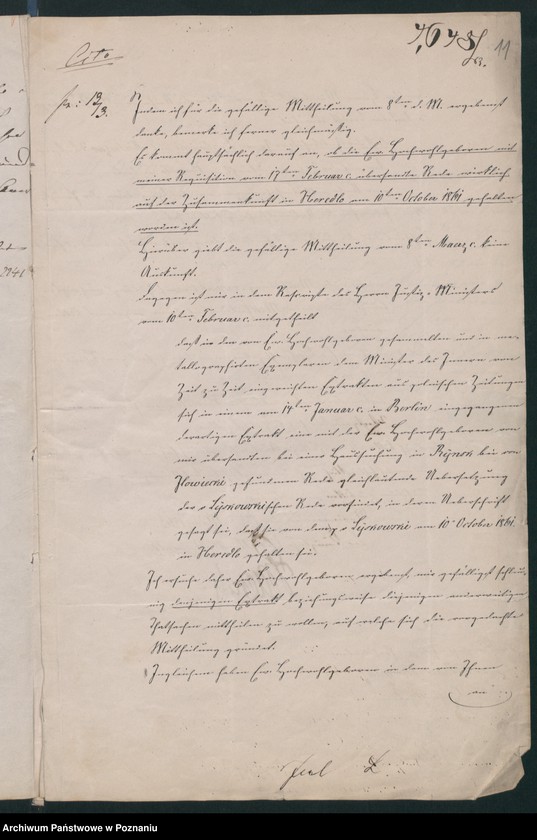 Cito
11
pr: 13/3.
Indem ich für die gefällige Mittheilung vom 8ten d. M. ergebenst
danke, bemerke ich ferner
Es kommt hauptsächlich darauf an, ob die Ew. Hochwohlgeboren mit
meiner Requisition vom 17ten Februar c. übersandte Rede wirklich
auf der Zusammenkunft in Horodlo am 10ten October 1861 gehalten
worden ist.
Hierüber giebt die gefällige Mittheilung vom 8ten Maerz c. keine
Auskunft.
Dagegen ist mir in dem Rescripte des Herrn Justiz-Ministers
vom 10ten Februar c. mitgetheilt
daß in den von Ew. Hochwohlgeboren gesammelten und in me-
tallographirten Exemplaren dem Minister des Innern von
Zeit zu Zeit eingereichten Extrakten aus polnischen Zeitungen
sich in einem am 14ten Januar c. in Berlin eingegangenen
derartigen Extrakt eine mit der Ew. Hochwohlgeboren von
mir übersandten bei einer Haussuchung in bei von
gefundenen Rede gleichlautende Uebersetzung
der schen Rede vorfindet, in deren Ueberschrift
gesagt sei, daß sie von dem p v am 10 October 1861
in Horodlo gehalten sei.
Ich ersuche daher Ew. Hochwohlgeboren ergebenst, mir gefälligst schleu-
nig denjenigen Extrakt beziehungsweise diejenigen anderweitigen
Thatsachen mittheilen zu wollen, auf welche sich die vorgedachte
Mittheilung gründet.
Ingleichem haben Ew. Hochwohlgeboren in dem von Ihnen
an
Archiwum Państwowe w Poznaniu